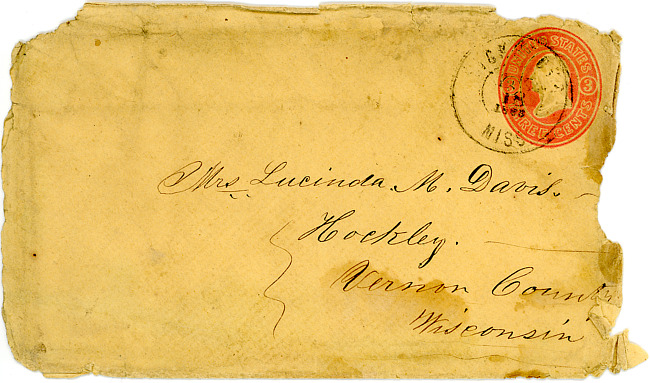 UNITED STATES
THREE CENTS
3
18
MISS
Mrs. Lucinda. M. Davis.
Hockley.
Vernon County
Wisconsin